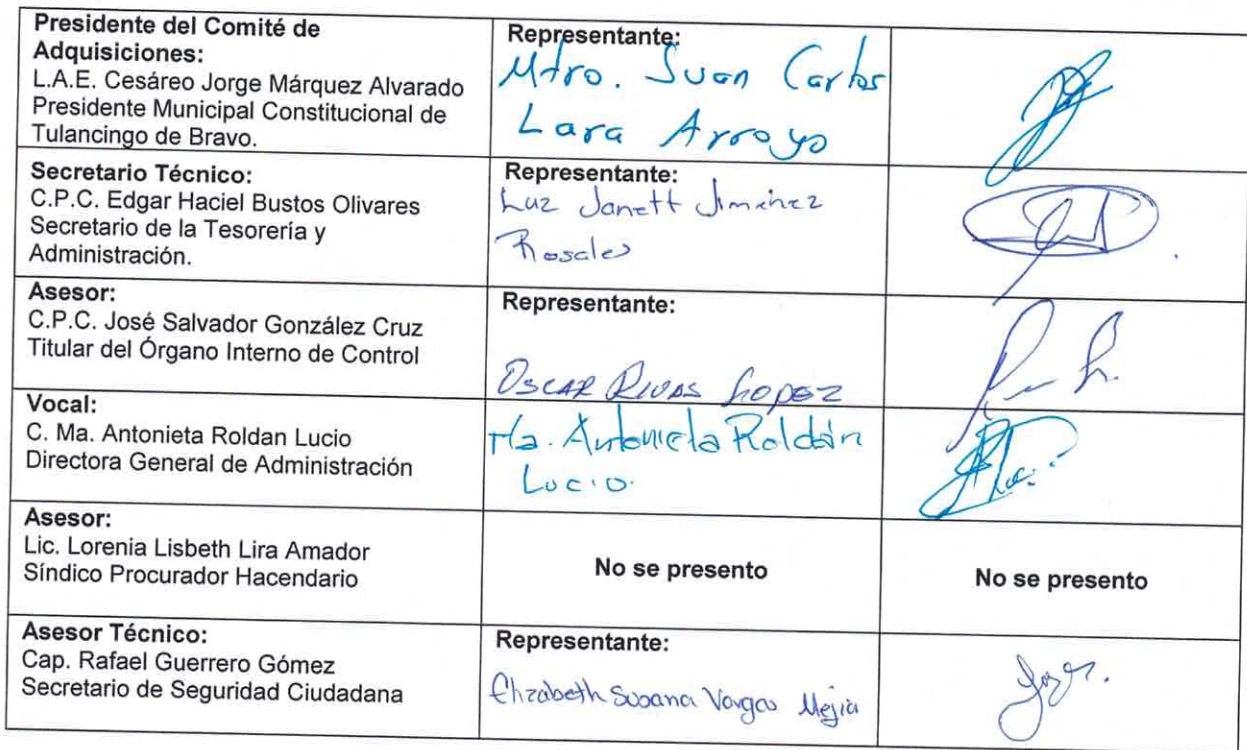 Presidente del Comité de
Adquisiciones:
L.A.E. Cesáreo Jorge Márquez Alvarado
Presidente Municipal Constitucional de
Tulancingo de Bravo.
Representante:
Mtro. Juan Carlos
Lara Arroyo
Secretario Técnico:
C.P.C. Edgar Haciel Bustos Olivares
Secretario de la Tesorería y
Administración.
Representante:
Luz Janett Jiménez
Rosales
Asesor:
C.P.C. José Salvador González Cruz
Titular del Órgano Interno de Control
Representante:
OSCAR RIVAS LOPEZ
Vocal:
C. Ma. Antonieta Roldan Lucio
Directora General de Administración
Ma. Antonieta Roldán
Lucio.
Asesor:
Lic. Lorenia Lisbeth Lira Amador
Síndico Procurador Hacendario
No se presento
No se presento
Asesor Técnico:
Cap. Rafael Guerrero Gómez
Secretario de Seguridad Ciudadana
Representante:
Elizabeth Susana Vargas Mejia